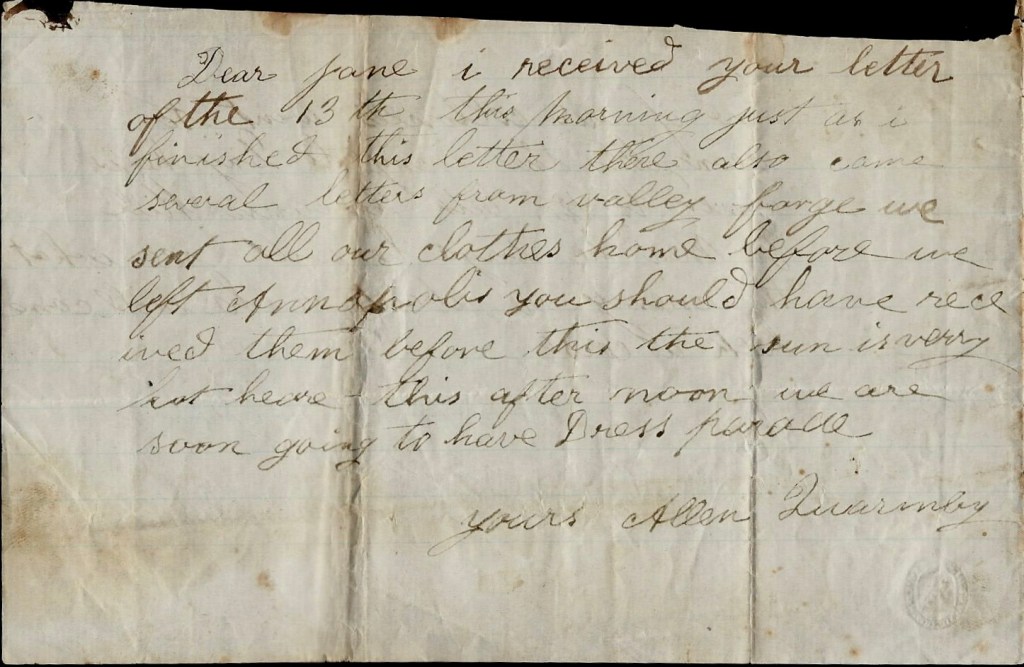 Dear Jane i received your letter
of the 13th this morning just as i
finished this letter there also came
several letters from valley forge we
sent all our clothes home before we
left Annapolis you should have rece
ived them before this the sun is verry
hot heare this after noon we are
soon going to have Dress parade
yours Allen Quarmby